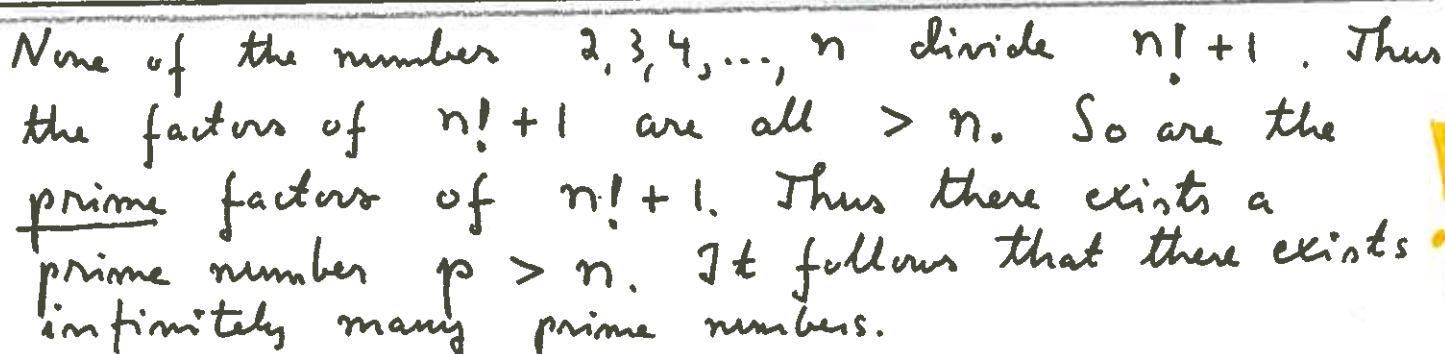 None of the number 2, 3, 4, ..., n divide n! + 1. Thus
the factors of n! + 1 are all > n. So are the
prime factors of n! + 1. Thus there exists a
prime number p > n. It follows that there exists
infinitely many prime numbers.